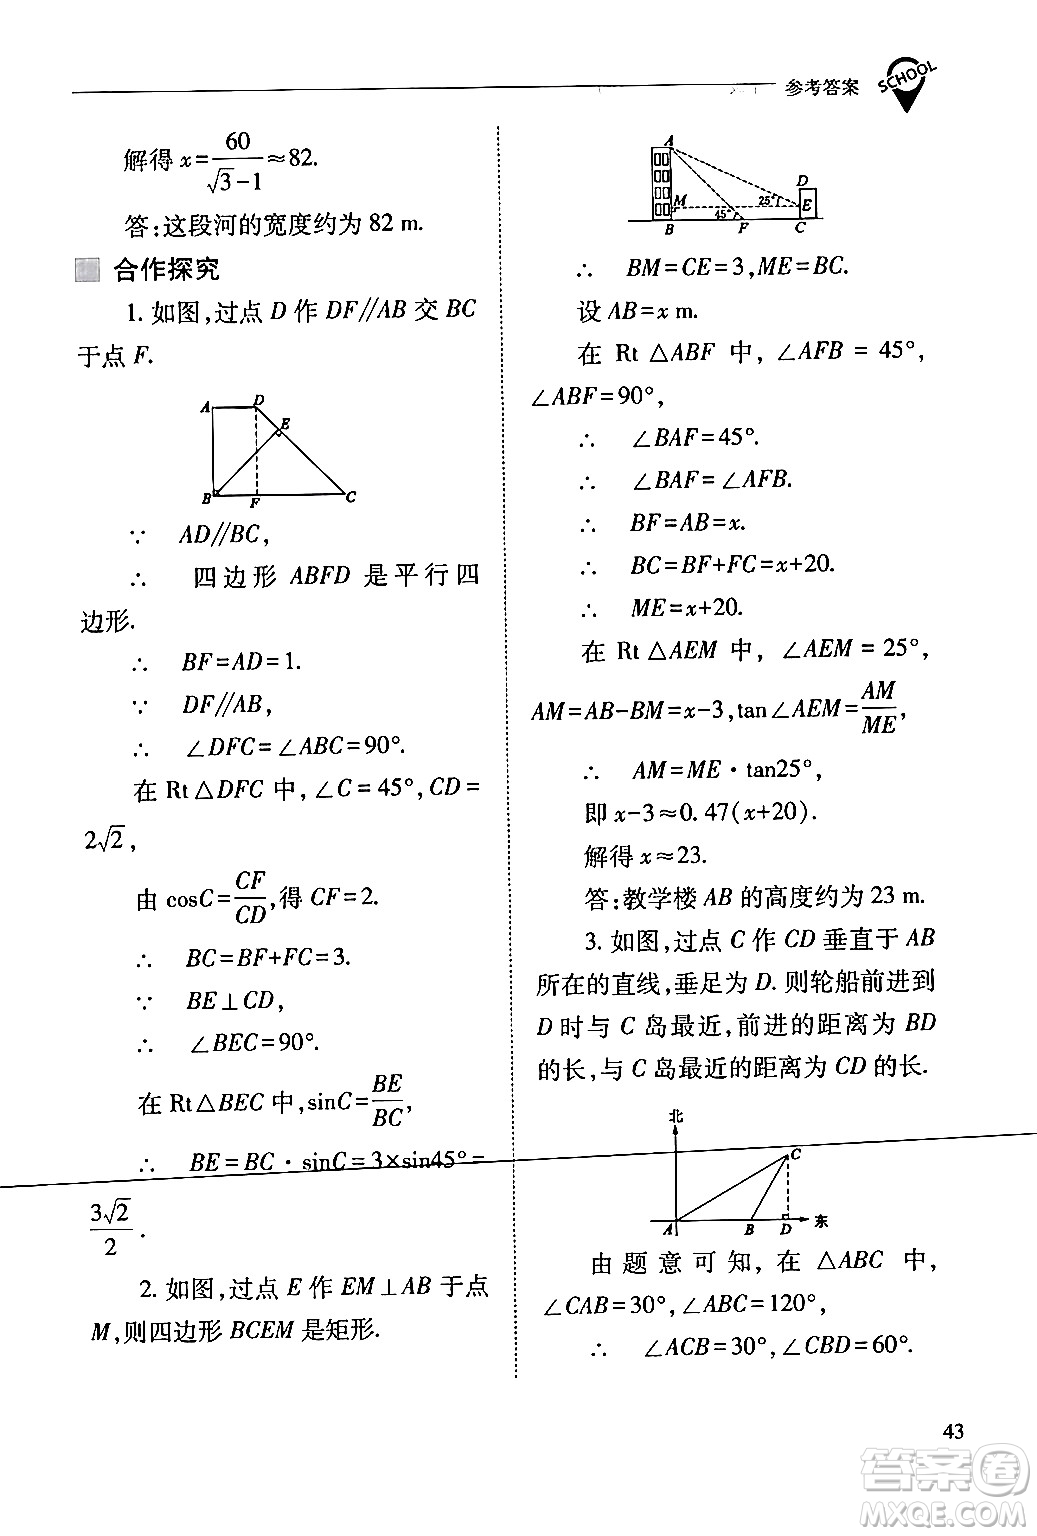 参考答案
SCHOOL
解得 x=60/(√3-1)≈82.
答:这段河的宽度约为 82 m.
合作探究
1. 如图,过点 D 作 DF//AB 交 BC
于点 F.
A D E
B F C
∵ AD//BC,
∴ 四边形 ABFD 是平行四
边形.
∴ BF=AD=1.
∵ DF//AB,
∴ ∠DFC=∠ABC=90°.
在 Rt△DFC 中,∠C=45°,CD=
2√2,
由 cosC=CF/CD,得 CF=2.
∴ BC=BF+FC=3.
∵ BE⊥CD,
∴ ∠BEC=90°.
在 Rt△BEC 中,sinC=BE/BC,
∴ BE=BC·sinC=3×sin45°=
3√2/2.
2. 如图,过点 E 作 EM⊥AB 于点
M,则四边形 BCEM 是矩形.
A
D
M 25° E
45°
B F C
∴ BM=CE=3,ME=BC.
设 AB=x m.
在 Rt △ABF 中, ∠AFB = 45°,
∠ABF=90°,
∴ ∠BAF=45°.
∴ ∠BAF=∠AFB.
∴ BF=AB=x.
∴ BC=BF+FC=x+20.
∴ ME=x+20.
在 Rt △AEM 中, ∠AEM = 25°,
AM=AB-BM=x-3,tan∠AEM=AM/ME,
∴ AM=ME·tan25°,
即 x-3≈0.47(x+20).
解得 x≈23.
答:教学楼 AB 的高度约为 23 m.
3. 如图,过点 C 作 CD 垂直于 AB
所在的直线,垂足为 D. 则轮船前进到
D 时与 C 岛最近,前进的距离为 BD
的长,与 C 岛最近的距离为 CD 的长.
北
C
A B D 东
由题意可知,在 △ABC 中,
∠CAB=30°,∠ABC=120°,
∴ ∠ACB=30°,∠CBD=60°.
43
答案圈
MXQE.COM